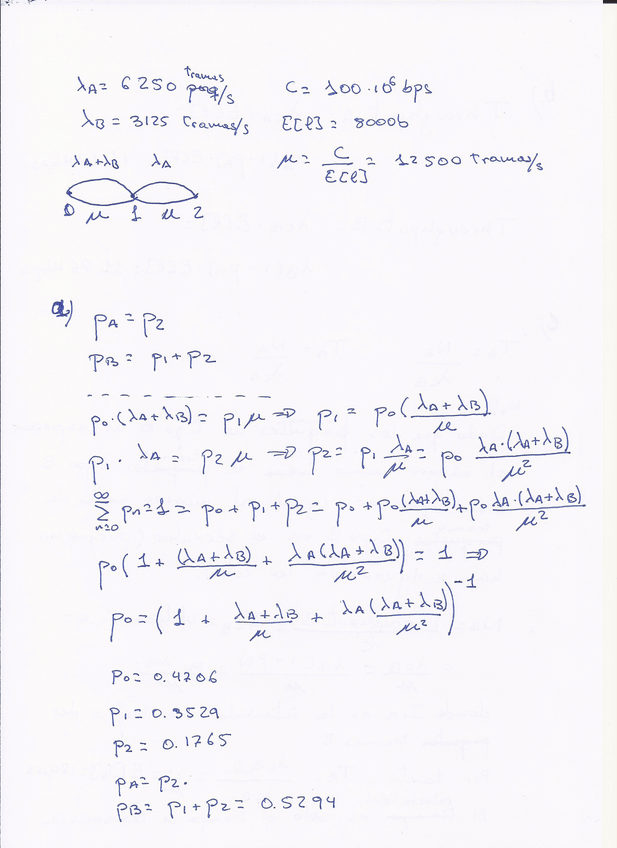 λA = 6250 tramas/s C = 100·10⁶ bps
λB = 3125 tramas/s E[l] = 8000b
λA+λB λA μ = C/E[l] = 12500 tramas/s
0 μ 1 μ 2
a) pA = p2
pB = p1 + p2
p0·(λA+λB) = p1 μ ⇒ p1 = p0 (λA+λB)/μ
p1 · λA = p2 μ ⇒ p2 = p1 λA/μ = p0 λA·(λA+λB)/μ²
∑_{n=0}^{∞} pn = 1 = p0 + p1 + p2 = p0 + p0 (λA+λB)/μ + p0 λA·(λA+λB)/μ²
p0 ( 1 + (λA+λB)/μ + λA(λA+λB)/μ² ) = 1 ⇒
p0 = ( 1 + λA+λB/μ + λA(λA+λB)/μ² )⁻¹
p0 = 0.4706
p1 = 0.3529
p2 = 0.1765
pA = p2.
pB = p1 + p2 = 0.5294